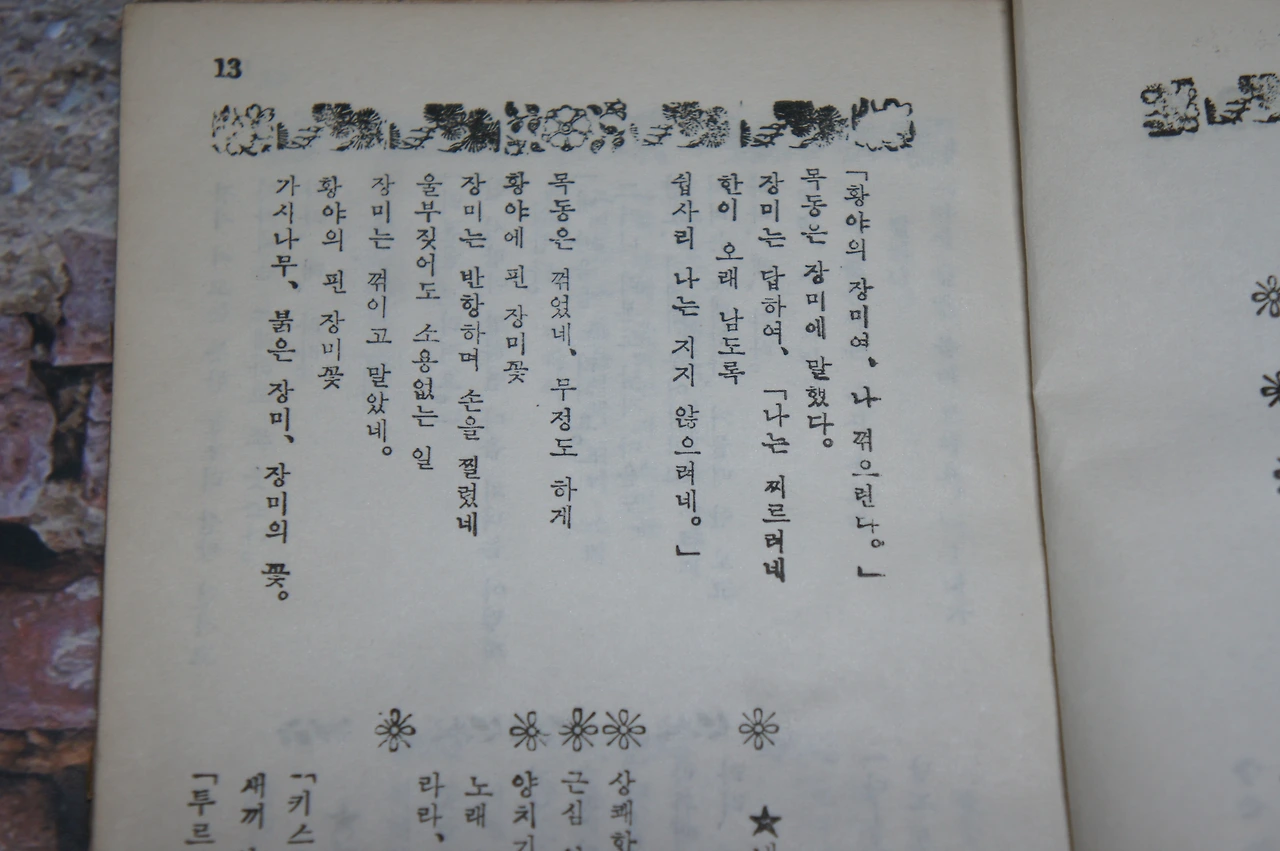 13
「황야의 장미여、나 꺾으련다。」
목동은 장미에 말했다。
장미는 답하여、「나는 찌르려네
한이 오래 남도록
쉽사리 나는 지지 않으려네。」
목동은 꺾었네、무정도 하게
황야에 핀 장미꽃
장미는 반항하며 손을 찔렀네
울부짖어도 소용없는 일
장미는 꺾이고 말았네。
황야의 핀 장미꽃
가시나무、붉은 장미、장미의 꽃。
★
상쾌한
근심
양치기
노래
라라、
「키스
새끼
「투르